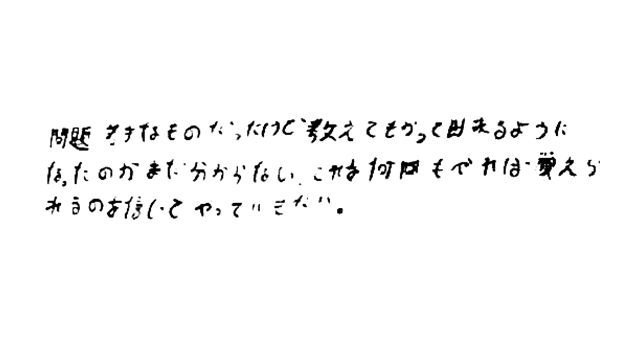 問題 きすなものだったけど教えてもらって出来るように
なったのかまだ分からない、これは何回もやれば覚えら
れるのを信じてやっていきたい。